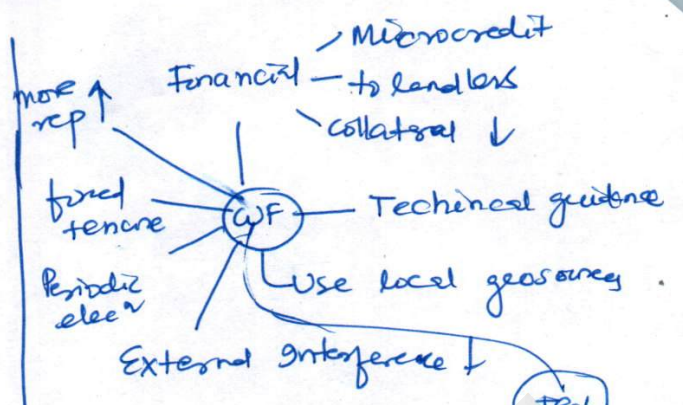 Microcredit
Financial
to landless
more ↑
rep
collateral ↓
fixed
tenure
WF
Techincal guidance
Periodic
elecⁿ
Use local resources
External Interference ↓